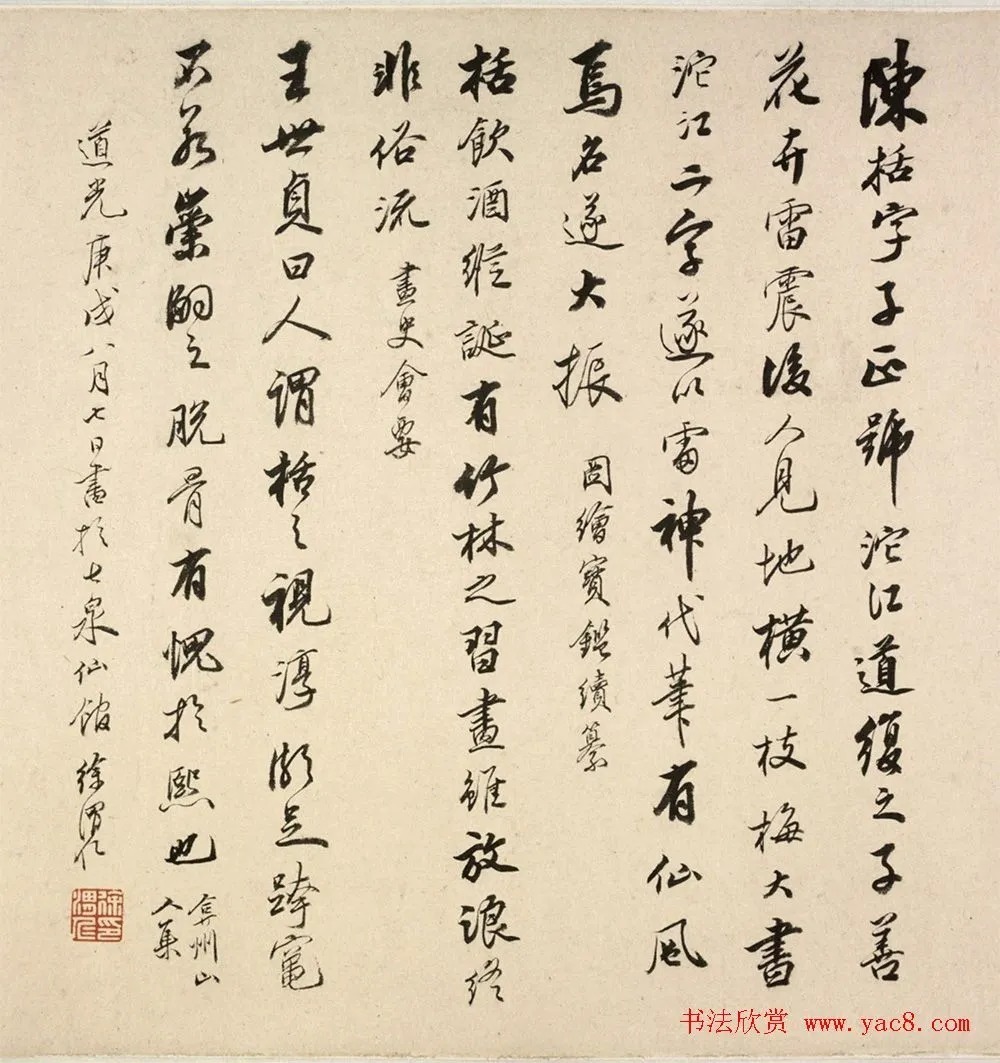 陳栝字子正號沱江道復之子善
花卉雷震後人見地橫一枝梅大書
沱江二字遂以雷神代筆有仙風
焉名遂大振 圖繪寶鑑續纂
栝飲酒縱誕有竹林之習畫雖放浪終
非俗流 畫史會要
王世貞曰人謂栝之視淳頗足跨竈
不若崇嗣之脫骨有愧於熙也 弇州山
人集
道光庚戌八月七日書於七泉仙館徐渭仁
徐印渭仁
书法欣赏 www.yac8.com